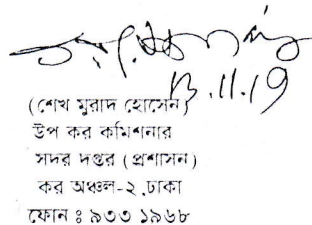 13.11.19
(শেখ মুরাদ হোসেন)
উপ কর কমিশনার
সদর দপ্তর (প্রশাসন)
কর অঞ্চল-২,ঢাকা
ফোন ঃ ৯৩৩ ১৯৬৮